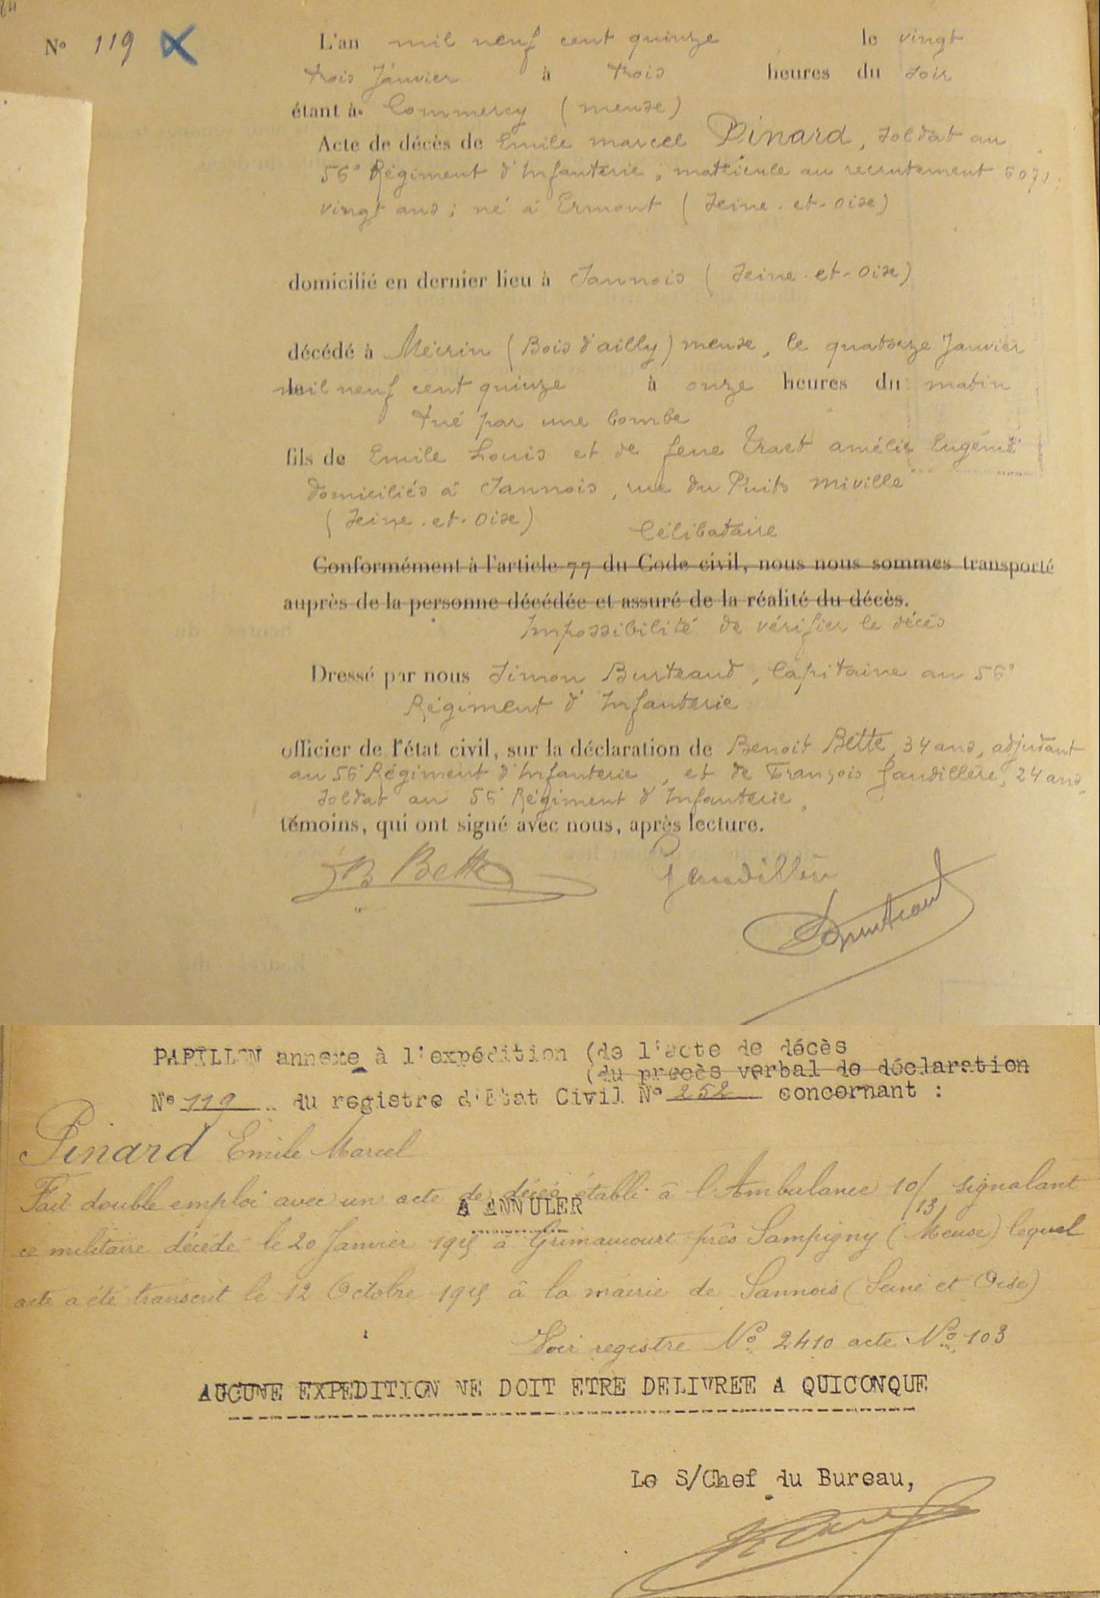 N° 119
L'an mil neuf cent quinze le vingt
trois Janvier à trois heures du soir
étant à Commercy (meuse)
Acte de décès de Emile marcel Pinard, soldat au
56° Régiment d'Infanterie, matricule au recrutement
vingt ans ; né à Ermont (Seine-et-Oise)
domicilié en dernier lieu à Sannois (Seine-et-Oise)
décédé à Mécrin (Bois d'ailly) meuse, le quatorze Janvier
mil neuf cent quinze à onze heures du matin
tué par une bombe
fils de Emile Louis et de feue amélie Eugénie
domiciliés à Sannois, rue du Puits miville
(Seine-et-Oise)
Célibataire
Conformément à l'article 77 du Code civil, nous nous sommes transporté
auprès de la personne décédée et assuré de la réalité du décès.
Impossibilité de vérifier le décès
Dressé par nous Simon Burteaud, Capitaine au 56°
Régiment d'Infanterie
officier de l'état civil, sur la déclaration de Benoit Bette, 34 ans, adjudant
au 56° Régiment d'Infanterie, et de François Gaudillère, 24 ans,
soldat au 56° Régiment d'Infanterie,
témoins, qui ont signé avec nous, après lecture.
B Bette Gaudillère
PAPILLON annexe à l'expédition (de l'acte de décès
(du procès verbal de déclaration
N° 119 du registre d'Etat Civil N° 252 concernant :
Pinard Emile Marcel
Fait double emploi avec un acte de décès établi à l'Ambulance 10/13 signalant
A ANNULER
ce militaire décédé le 20 Janvier 1915 à Grimaucourt près Sampigny (Meuse) lequel
acte a été transcrit le 12 Octobre 1915 à la mairie de Sannois (Seine et Oise)
Voir registre N° 2410 acte N° 103
AUCUNE EXPEDITION NE DOIT ETRE DELIVREE A QUICONQUE
Le S/Chef du Bureau,